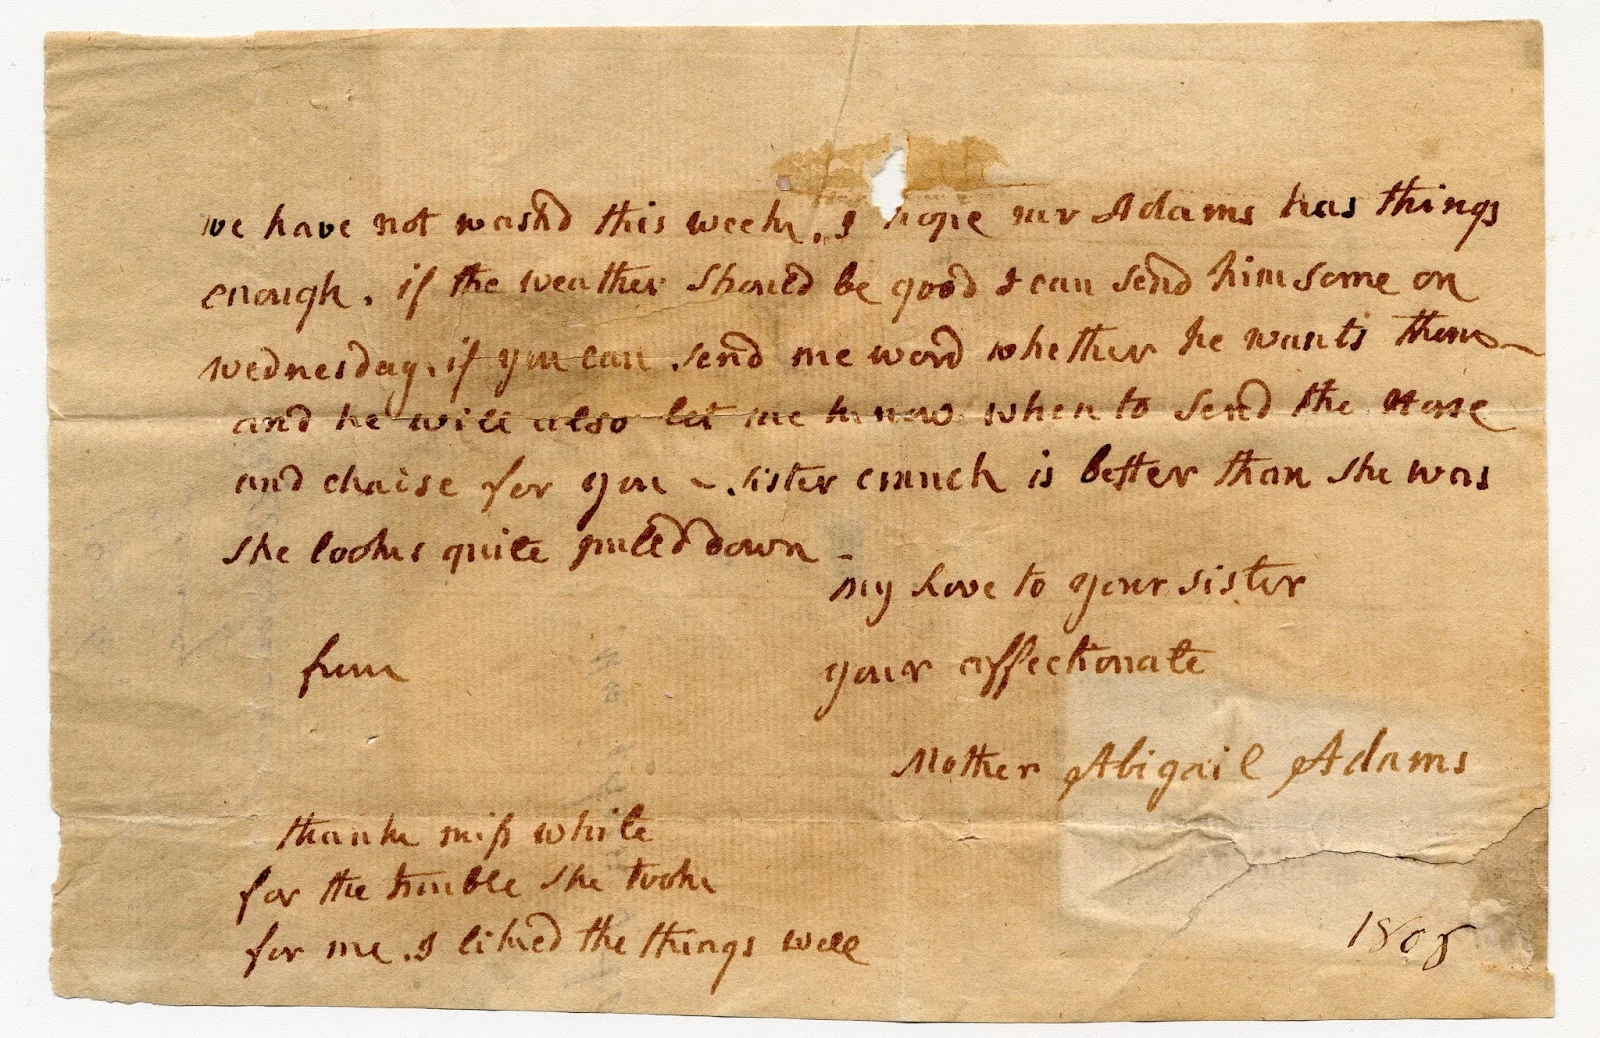 we have not washd this week. I hope mr Adams has things
enough. if the weather should be good I can send him some on
wednesday. if you can send me word whether he wants them
and he will also let me know when to send the Horse
and chaise for you ~ sister cranch is better than she was
she looks quite pulled down -
my Love to your sister
your affectionate
Mother Abigail Adams
thank miss white
for the trouble she took
for me. I liked the things well
1808